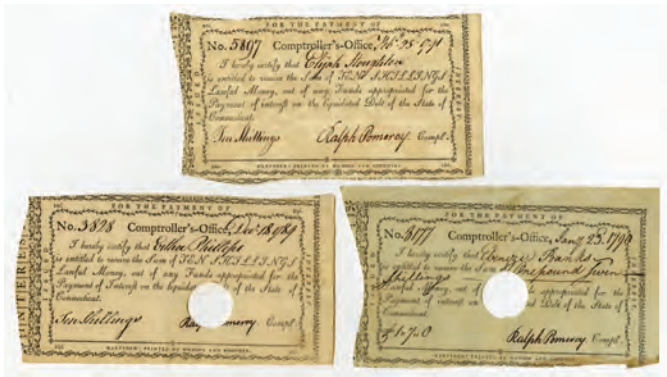 FOR THE PAYMENT OF
No. 5897 Comptroller's-Office, Feb 25 1791
I hereby certify that Elijah Houghton
is entitled to receive the Sum of TEN SHILLINGS
Lawful Money, out of any Funds appropriated for the
Payment of interest on the liquidated Debt of the State of
Connecticut.
Ten Shillings Ralph Pomeroy Compt.
HARTFORD: PRINTED BY HUDSON AND GOODWIN.
ISSUED
INTEREST.
FOR THE PAYMENT OF
No. 3828 Comptroller's-Office, Dec 18 1789
I hereby certify that Phillips
is entitled to receive the Sum of TEN SHILLINGS
Lawful Money, out of any Funds appropriated for the
Payment of Interest on the liquidat of the State of
Connecticut.
Ten Shillings Pomeroy Compt.
HARTFORD: PRINTED BY HUDSON AND GOODWIN.
INTEREST
ISSUED
FOR THE PAYMENT OF
No. 3177 Comptroller's-Office, Jany 23 1790
I hereby certify that Ebenezer Banks
is entitled to receive the Sum One pound Seven
Shillings
Lawful Money, out of appropriated for the
Payment of interest on Debt of the State of
Connecticut.
£1..7..0 Ralph Pomeroy Compt.
HARTFORD: PRINTED BY HUDSON AND GOODWIN.
ISSUED
INTEREST.